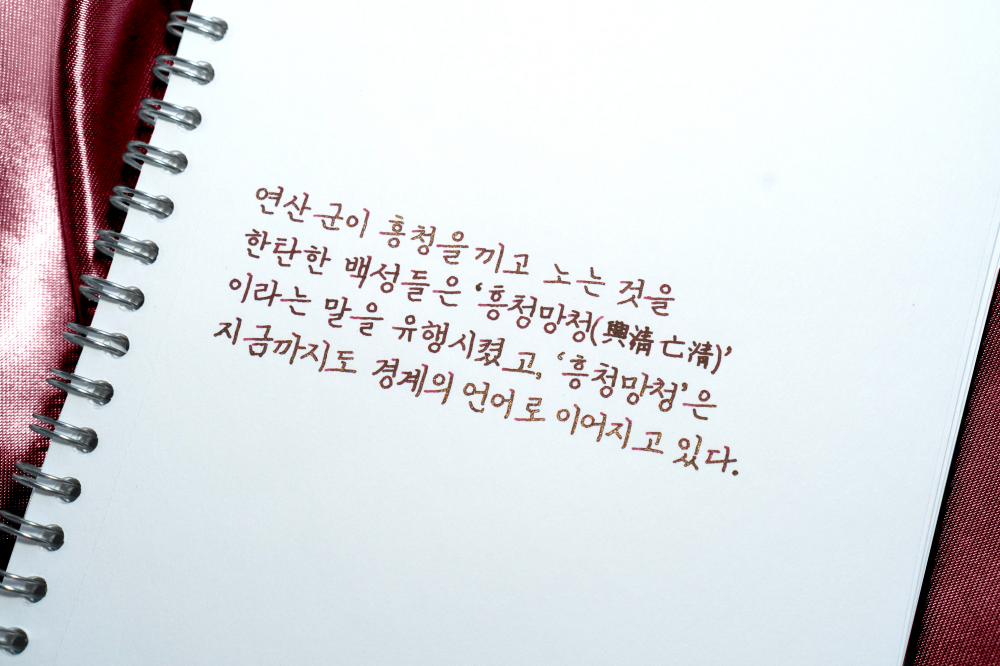 연산군이 흥청을 끼고 노는 것을
한탄한 백성들은 ‘흥청망청(興淸亡淸)’
이라는 말을 유행시켰고, ‘흥청망청’은
지금까지도 경계의 언어로 이어지고 있다.